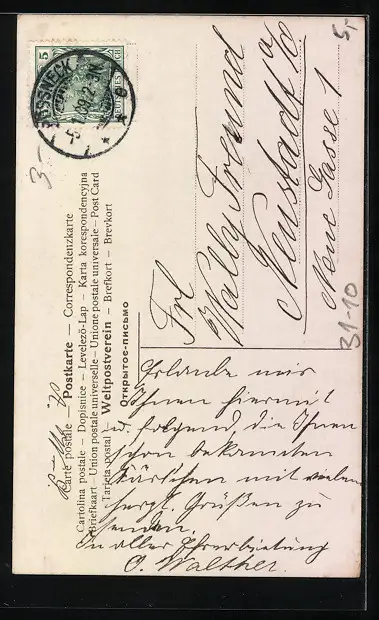 5
DEUTSCHES REICH
PÖSSNECK
5-
3-
31-10
Carte postale — Postkarte — Correspondenzkarte
Cartolina postale — Dopisnice — Levelező-Lap — Karta korespondencyjna
Briefkaart — Union postale universelle — Unione postale universale — Post Card
Tarjeta postal — Weltpostverein — Brefkort — Brevkort
Открытое-письмо
Frl
Wally Freund
Neustadt a/O
Neue Gasse 1
Erlaube mir
Ihnen hiermit
u. folgend, die Ihnen
schon bekannten
Kärtchen mit vielen
herzl. Grüßen zu
senden.
In aller Ehrerbietung
O. Walther.